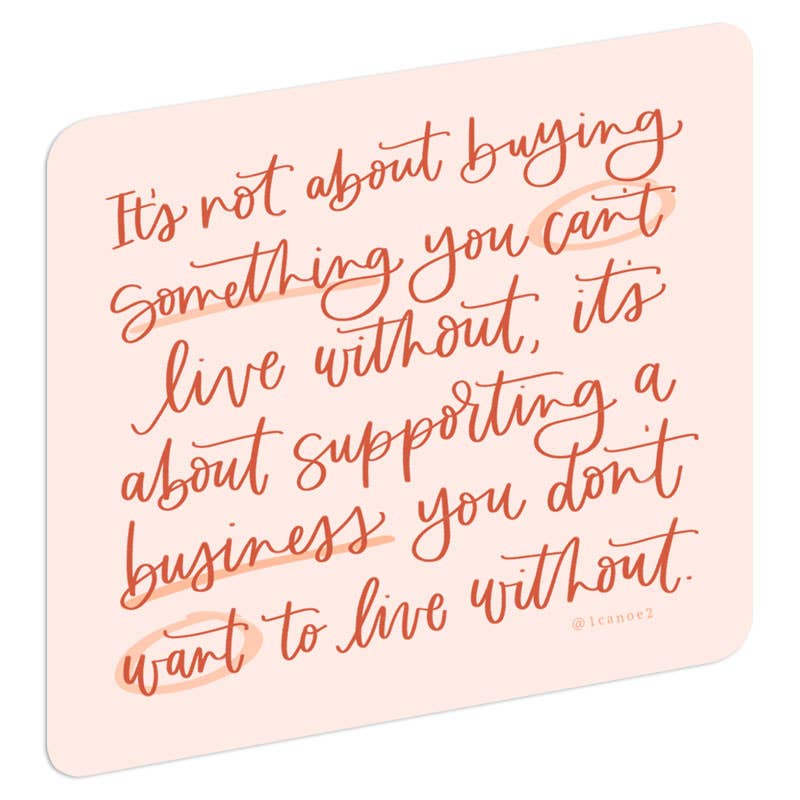 It's not about buying
something you can't
live without, it's
about supporting a
business you don't
want to live without.
@1canoe2